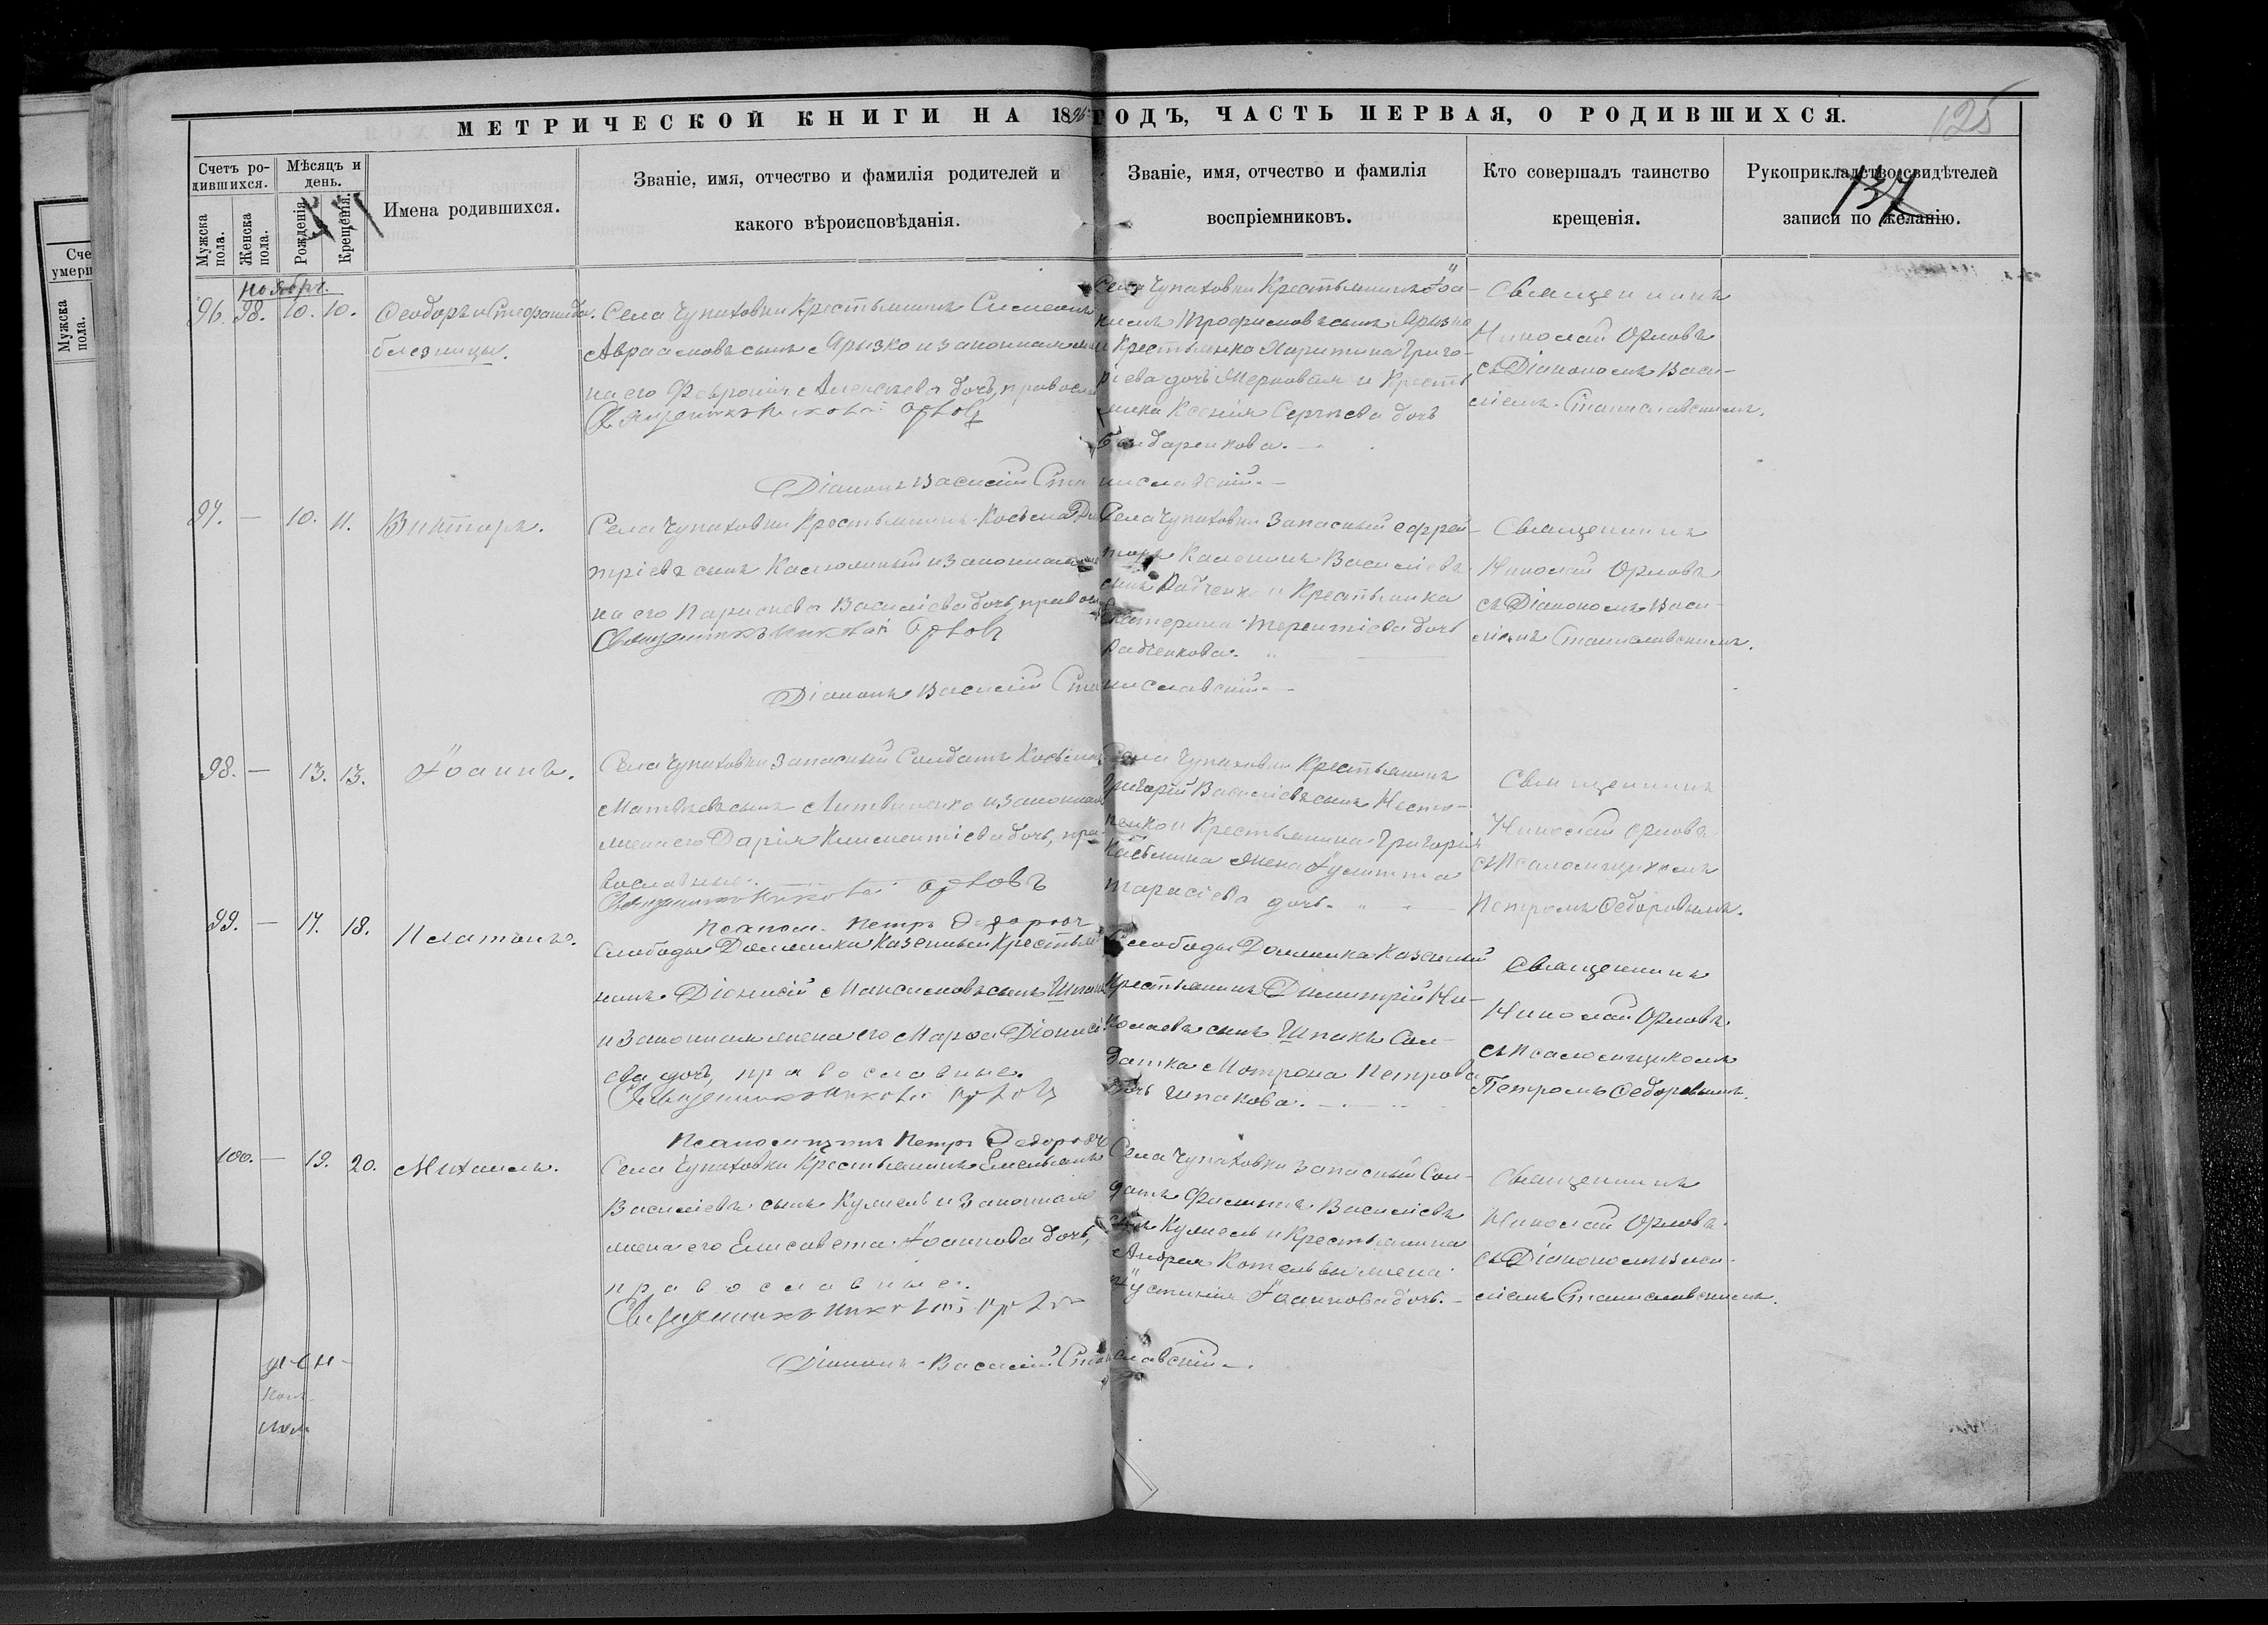 МЕТРИЧЕСКОЙ КНИГИ НА 1896 ГОДЪ, ЧАСТЬ ПЕРВАЯ, О РОДИВШИХСЯ.
125
Счетъ родившихся.
Мужска пола.
Женска пола.
Мѣсяцъ и день.
Рожденія.
Крещенія.
Имена родившихся.
Званіе, имя, отчество и фамилія родителей и
какого вѣроисповѣданія.
Званіе, имя, отчество и фамилія
воспріемниковъ.
Кто совершалъ таинство
крещенія.
Рукоприкладство свидѣтелей
записи по желанію.
137
Ноябрь.
96. 98. 10. 10.
Ѳеодоръ и Стефанида
близницы.
Села Чупаховки Крестьянинъ Симеонъ
Авраамовъ сынъ Ярызко и законная
на его Февронія Алексѣева дочь, правосл
Священникъ Николай Орловъ
Діаконъ Василій Станиславскій
Села Чупаховки Крестьянинъ Іоа-
ннъ Трофимовъ сынъ Ярызко
Крестьянка Харитина Григо-
ріева дочь и Кресть
янка Ксенія Сергѣева дочь
Бондаренкова.
Священникъ
Николай Орловъ
съ Діакономъ Васи-
ліемъ Станиславскимъ.
97. — 10. 11.
Викторъ.
Села Чупаховки Крестьянинъ Косьма Ди
тріевъ сынъ и законная
на его Параскева Василіева дочь, правосл
Священникъ Николай Орловъ
Діаконъ Василій Станиславскій
Села Чупаховки Запасный ефрей-
торъ Василіевъ
сынъ Радченко и Крестьянка
Екатерина Терентіева дочь
Радченкова.
Священникъ
Николай Орловъ
съ Діакономъ Васи-
ліемъ Станиславскимъ.
98. — 13. 13.
Іоаннъ.
Села Чупаховки запасный Солдатъ Косьма
Матвѣевъ сынъ Литвиненко и законная
жена его Дарія Климентіева дочь, пра-
вославные.
Священникъ Николай Орловъ
Псалом. Петръ Ѳедоровъ
Села Чупаховки Крестьянинъ
Григорій Василіевъ сынъ Несте-
ренко и Крестьянина Григорія
жена Іулитта
Тарасіева дочь.
Священникъ
Николай Орловъ
съ Псаломщикомъ
Петромъ Ѳедоровымъ.
99. — 17. 18.
Платонъ.
Слободы Казенный Крестья
нинъ Діонисій Максимовъ сынъ Шпакъ
и законная жена его Марѳа Діонисі
ева дочь, православные.
Священникъ Николай Орловъ
Псаломщикъ Петръ Ѳедоровъ
Слободы Казенный
Крестьянинъ Димитрій Ни-
колаевъ сынъ Шпакъ Сол-
датка Мотрона Петрова
дочь Шпакова.
Священникъ
Николай Орловъ
съ Псаломщикомъ
Петромъ Ѳедоровымъ.
100. — 19. 20.
Михаилъ.
Села Чупаховки Крестьянинъ Емельянъ
Василіевъ сынъ Кужель и законная
жена его Елисавета Іоаннова дочь,
православные.
Священникъ Николай Орловъ
Діаконъ Василій Станиславскій
Села Чупаховки запасный Сол-
датъ Филиппъ Василіевъ
сынъ Кужель и Крестьянина
Андрея жена
Іустинія Іоаннова дочь.
Священникъ
Николай Орловъ
съ Діакономъ Васи-
ліемъ Станиславскимъ.